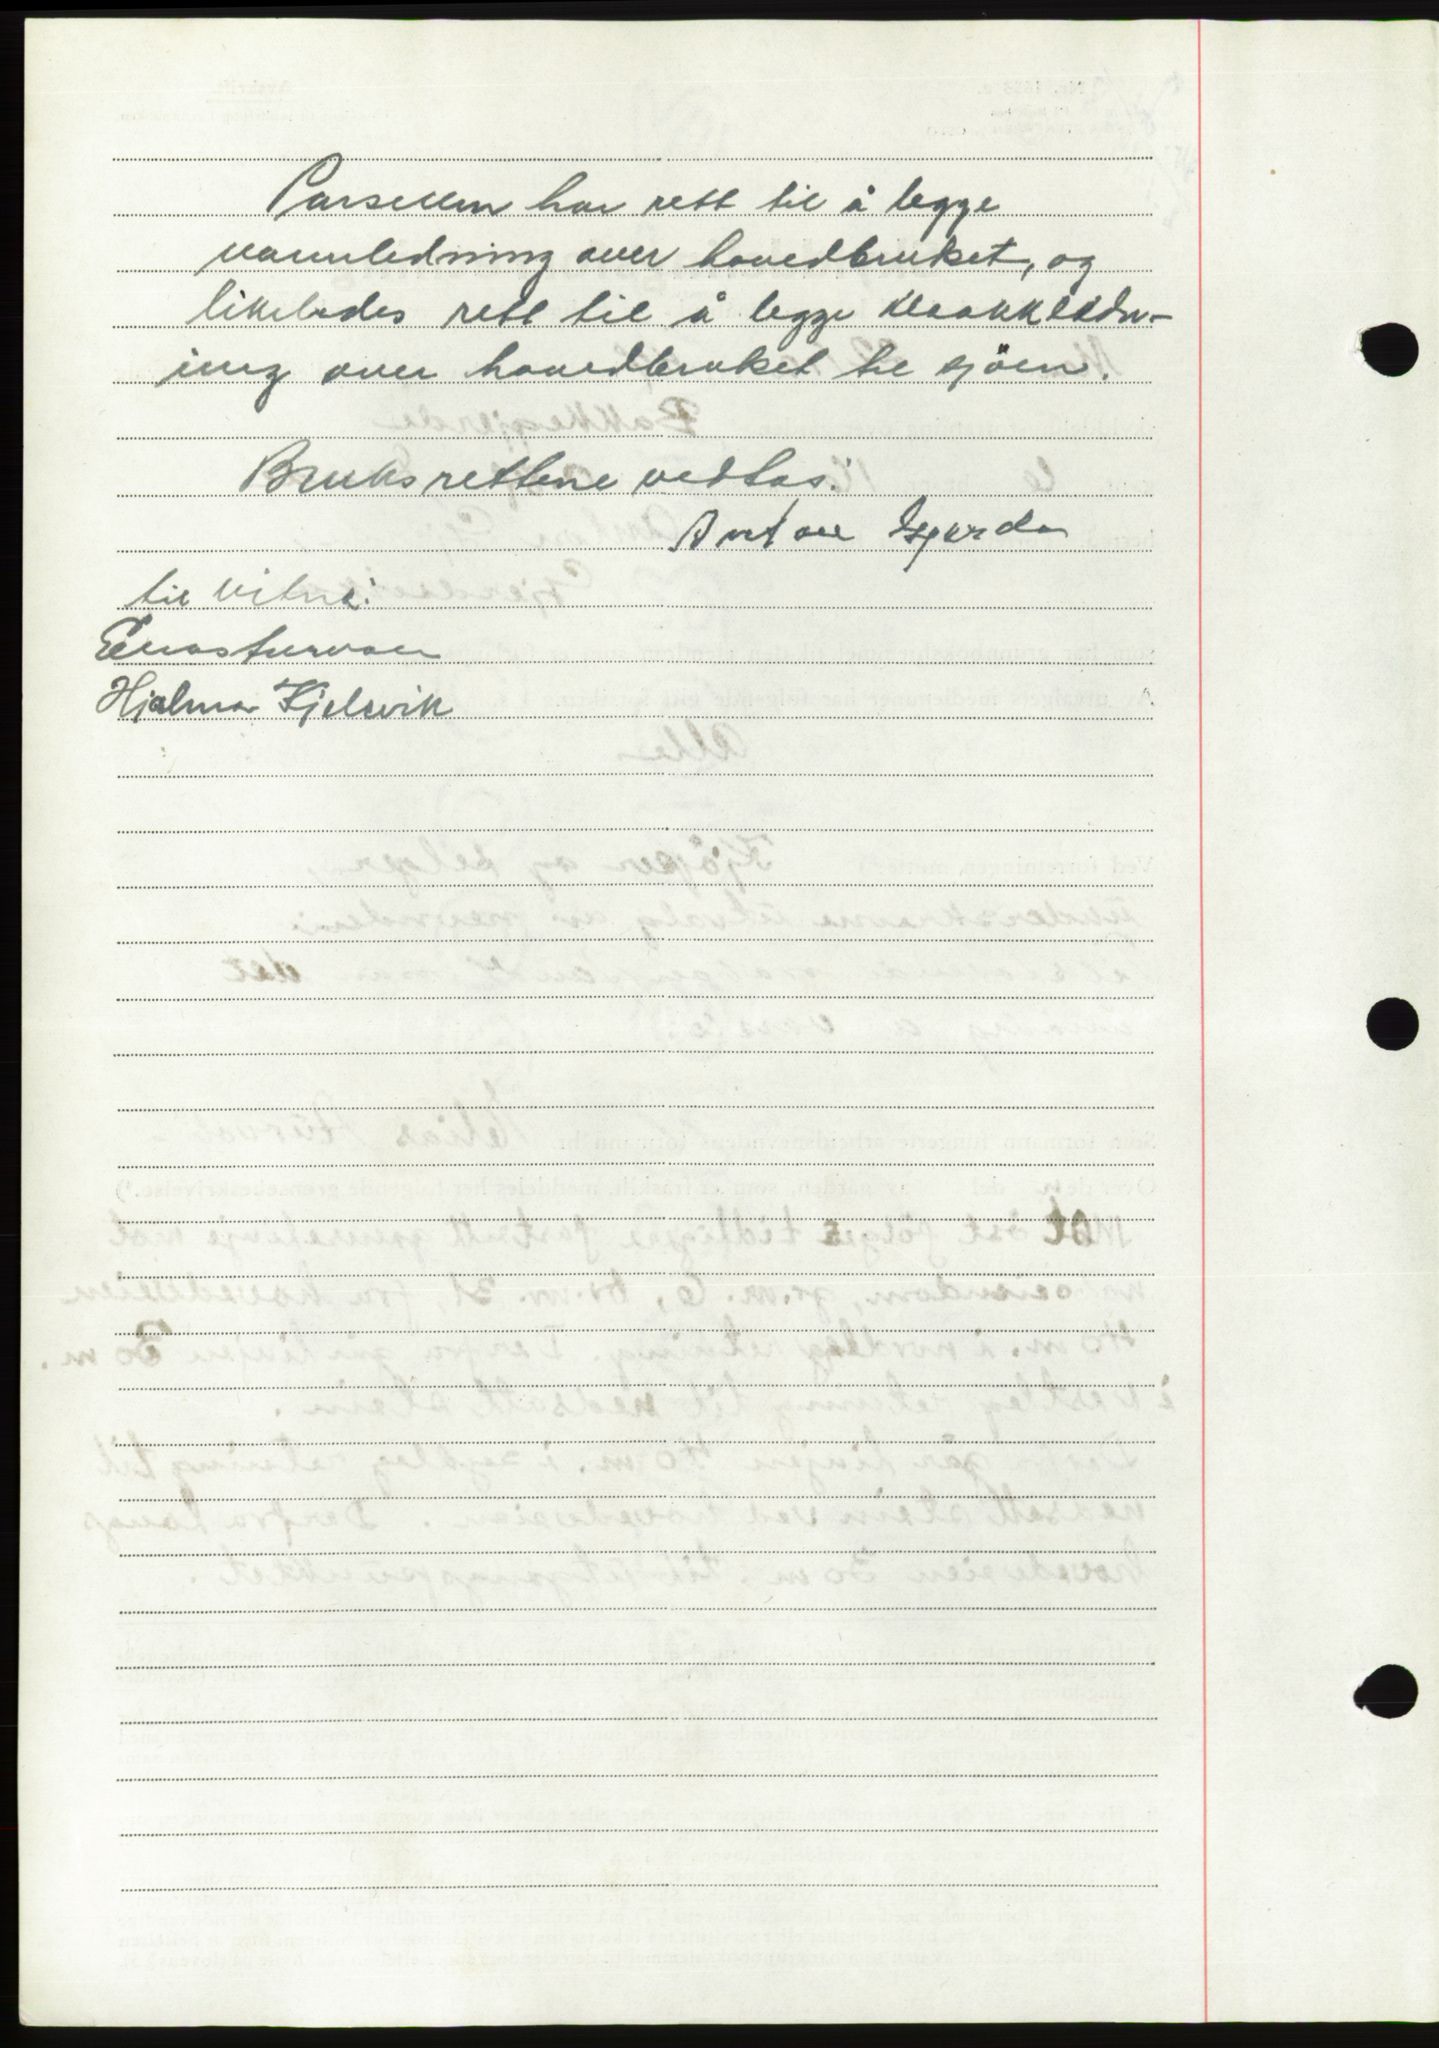 Parsellen har rett til å legge
vannledning over hovedbruket, og
likeledes rett til å legge kloakkledn-
ing over hovedbruket til sjöen.
Bruksrettene vedtas:
Anton Gjerde
til vitne:
Hjalmar Kjelsvik